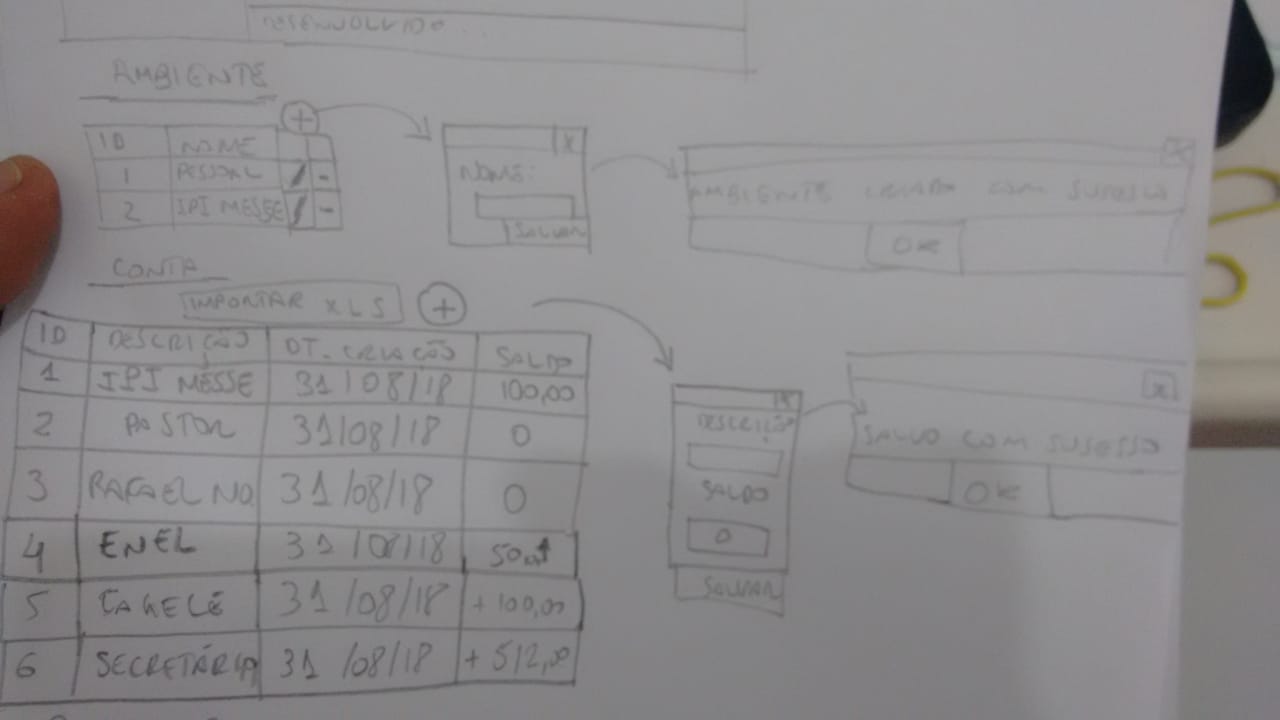 DESENVOLVIDO
AMBIENTE
+
ID NOME
1 PESSOAL / -
2 IPI MESSE / -
X
NOME:
SALVAR
X
AMBIENTE CRIADO COM SUSESSO
OK
CONTA
IMPORTAR XLS +
ID DESCRIÇÃO DT. CRIAÇÃO SALDO
1 IPI MESSE 31/08/18 100,00
2 PASTOR 31/08/18 0
3 RAFAEL NO 31/08/18 0
4 ENEL 31/08/18
5 31/08/18 +100,00
6 SECRETÁRIA 31/08/18 +512,00
X
DESCRIÇÃO
SALDO
0
SALVAR
X
SALVO COM SUSESSO
OK